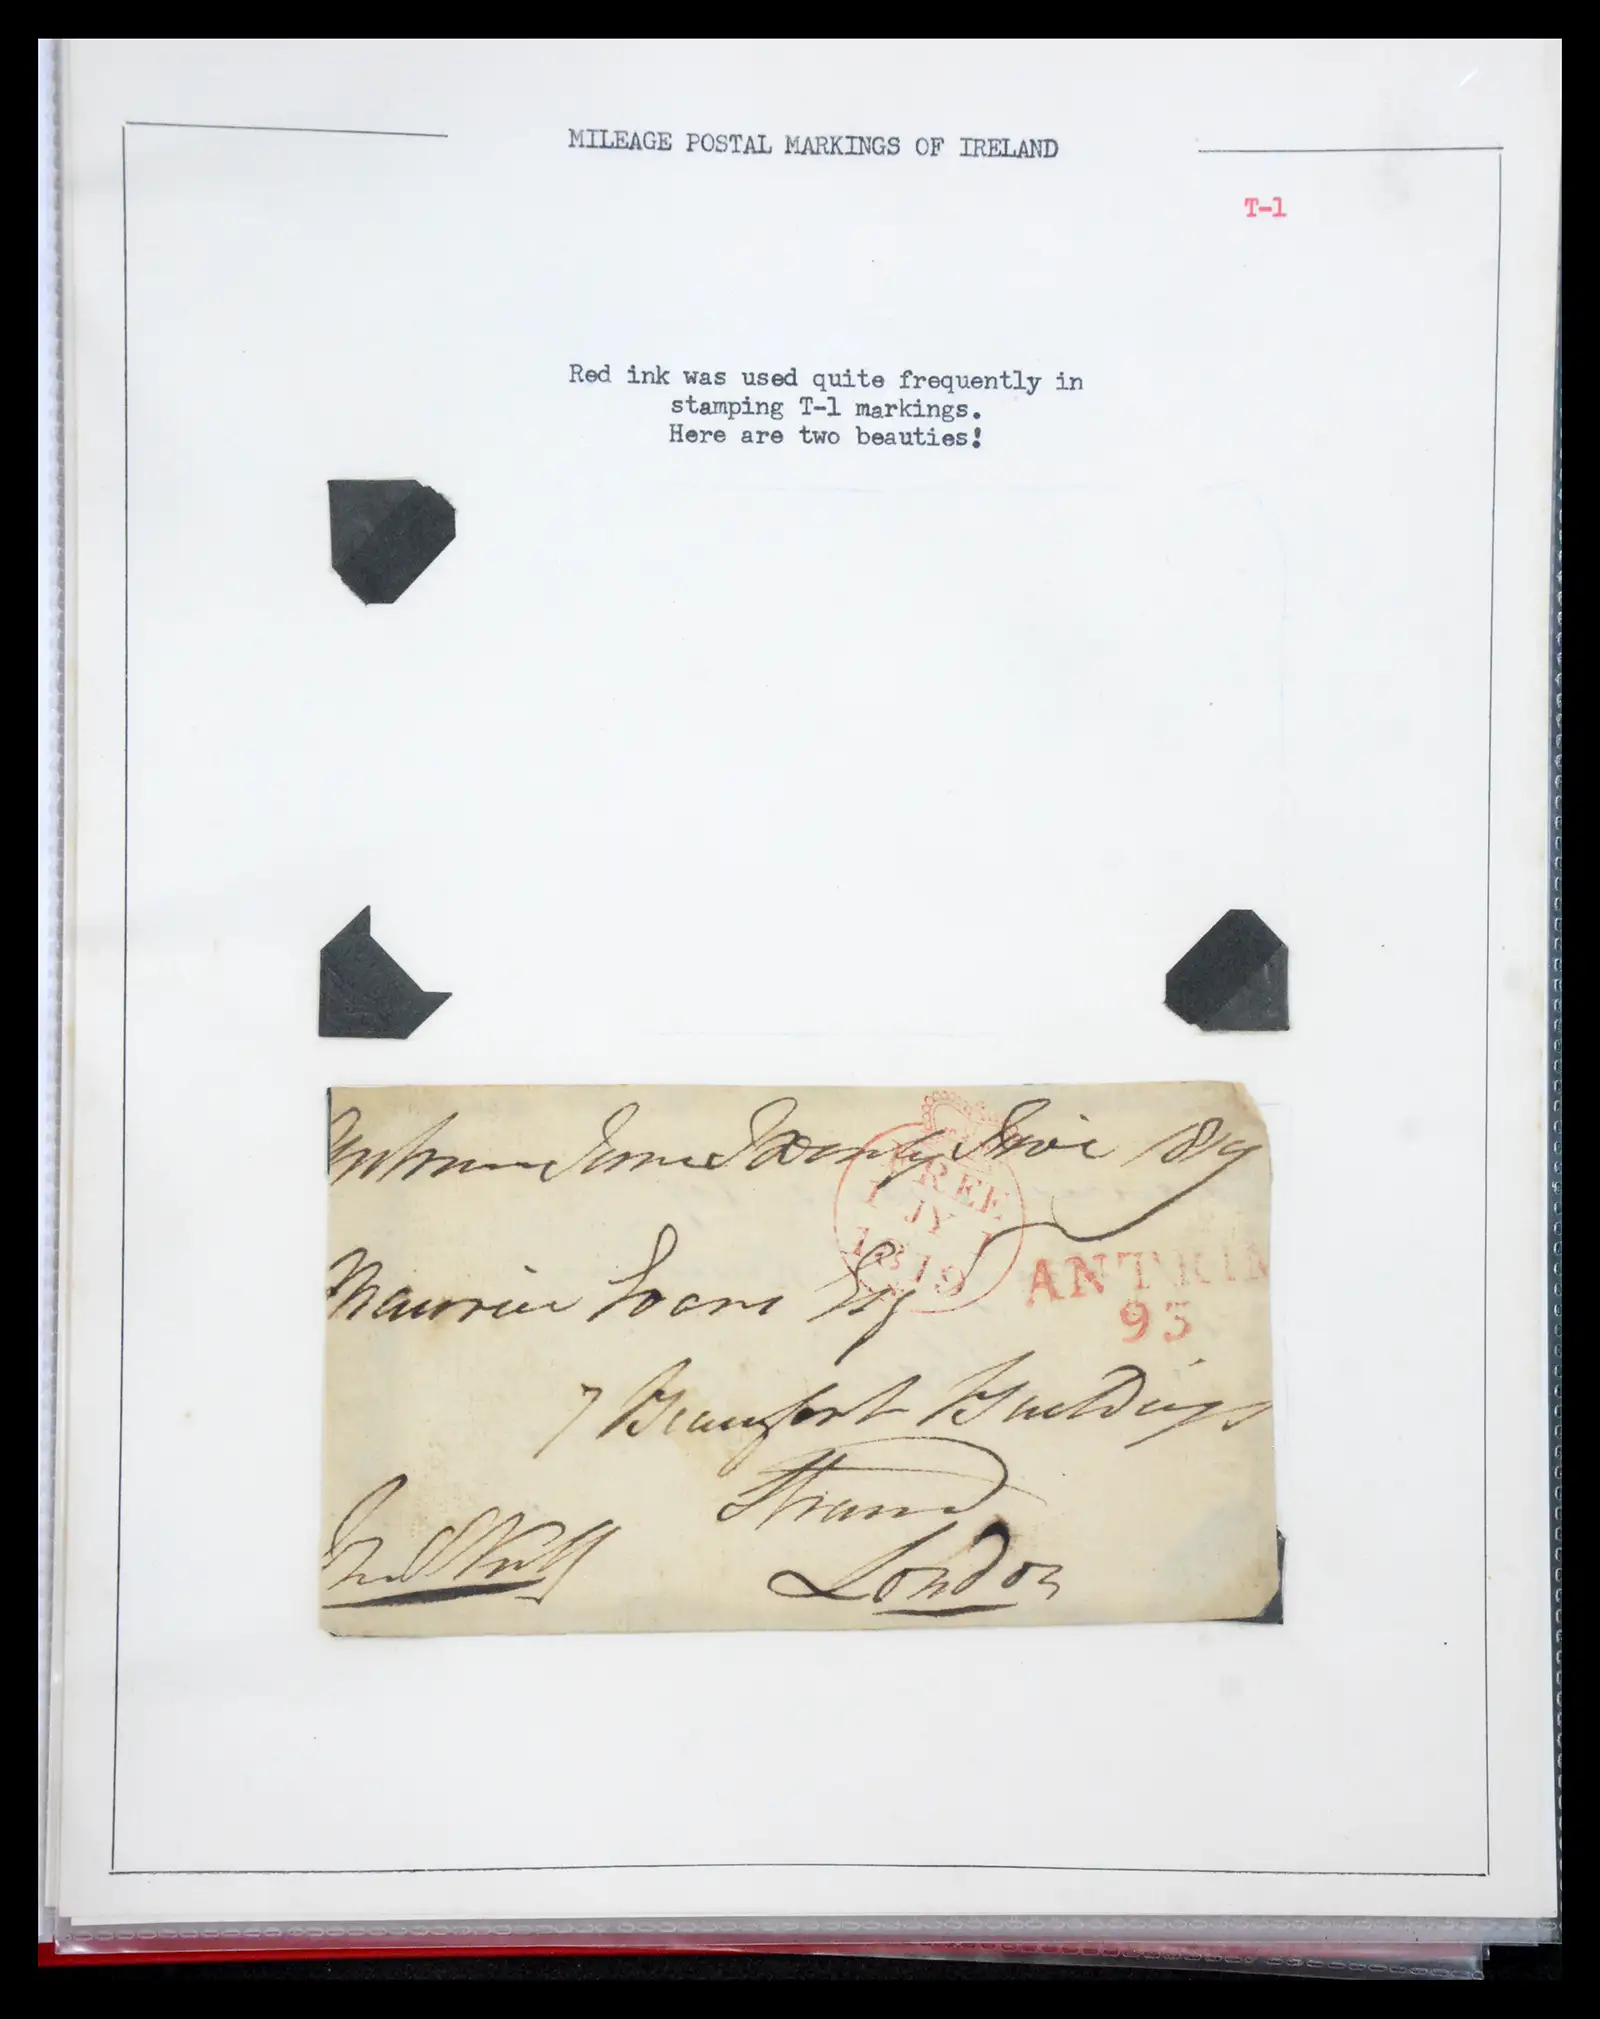 MILEAGE POSTAL MARKINGS OF IRELAND
T-1
Red ink was used quite frequently in
stamping T-1 markings.
Here are two beauties!
Antrim June Twenty Five 1819
FREE
1 JY 1
1819
Maurice Esq
ANTRIM
93
7 Beaufort Buildings
Strand
London